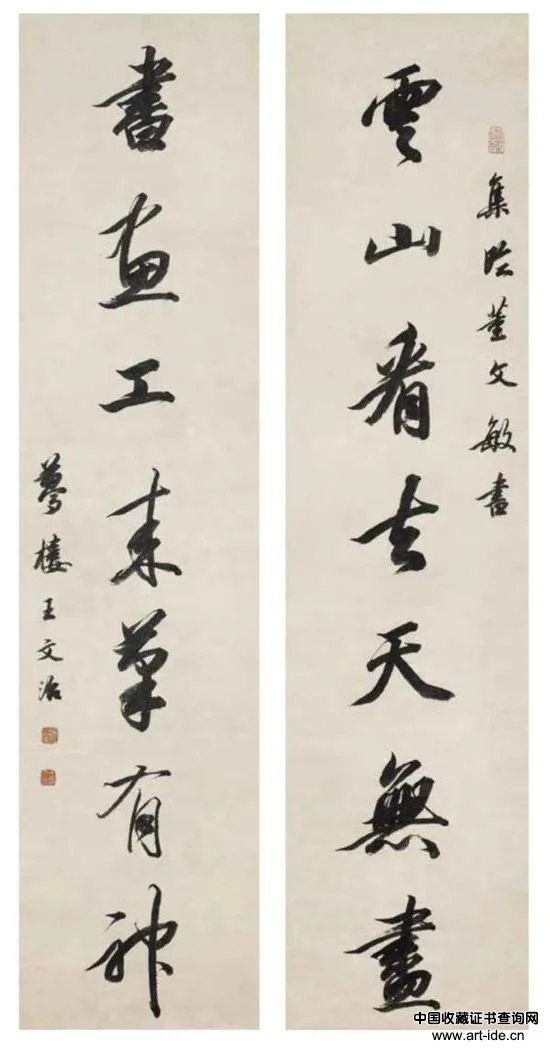 集董文敏書
雲山看去天無盡
書画工来筆有神
夢樓王文治
中国收藏证书查询网
www.art-ide.cn